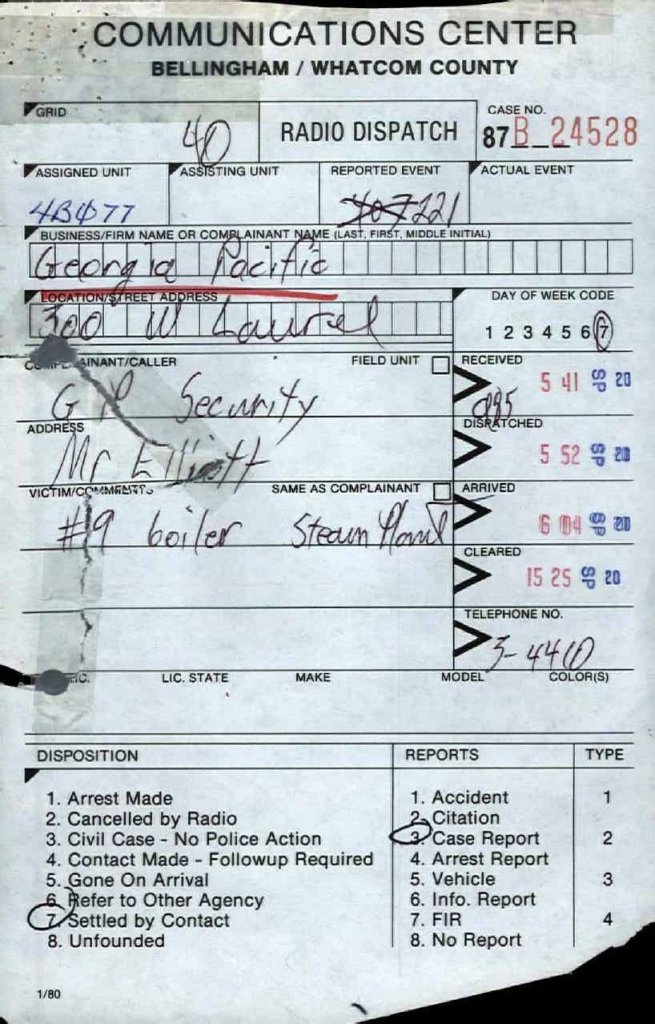 COMMUNICATIONS CENTER
BELLINGHAM / WHATCOM COUNTY
GRID
40
RADIO DISPATCH
CASE NO.
87B_24528
ASSIGNED UNIT
ASSISTING UNIT
REPORTED EVENT
ACTUAL EVENT
4B077
221
BUSINESS/FIRM NAME OR COMPLAINANT NAME (LAST, FIRST, MIDDLE INITIAL)
Georgia Pacific
LOCATION/STREET ADDRESS
300 W Laurel
DAY OF WEEK CODE
1 2 3 4 5 6 7
COMPLAINANT/CALLER
FIELD UNIT
GP Security
RECEIVED
5 41 SP 20
ADDRESS
Mr Elliott
DISPATCHED
5 52 SP 20
VICTIM/COMMENTS
SAME AS COMPLAINANT
#9 boiler Steam Plant
ARRIVED
6 04 SP 20
CLEARED
15 25 SP 20
TELEPHONE NO.
3-4410
LIC. STATE
MAKE
MODEL
COLOR(S)
DISPOSITION
1. Arrest Made
2. Cancelled by Radio
3. Civil Case - No Police Action
4. Contact Made - Followup Required
5. Gone On Arrival
6. Refer to Other Agency
7. Settled by Contact
8. Unfounded
REPORTS
1. Accident
2. Citation
3. Case Report
4. Arrest Report
5. Vehicle
6. Info. Report
7. FIR
8. No Report
TYPE
1
2
3
4
1/80